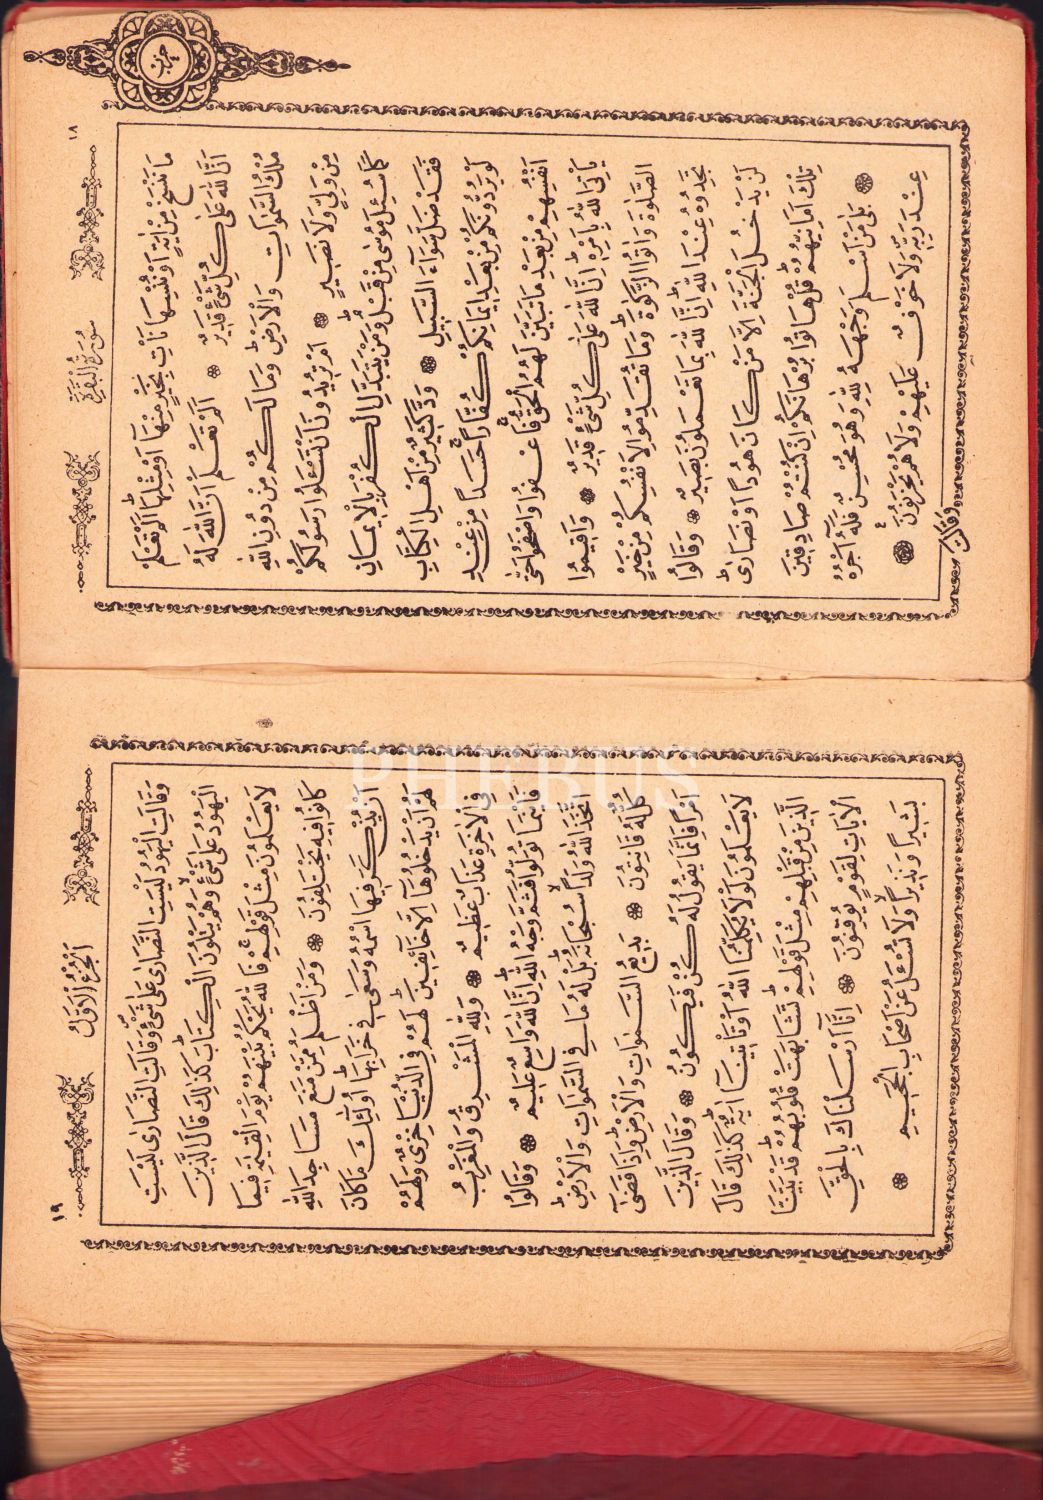 حزب
١٨
سُورَةُ الْبَقَرَةِ
مَا نَنْسَخْ مِنْ اٰيَةٍ اَوْ نُنْسِهَا نَاْتِ بِخَيْرٍ مِنْهَٓا اَوْ مِثْلِهَاۜ اَلَمْ تَعْلَمْ
اَنَّ اللّٰهَ عَلٰى كُلِّ شَىْءٍ قَدٖيرٌ ۞ اَلَمْ تَعْلَمْ اَنَّ اللّٰهَ لَهُ
مُلْكُ السَّمٰوَاتِ وَالْاَرْضِۜ وَمَا لَكُمْ مِنْ دُونِ اللّٰهِ
مِنْ وَلِىٍّ وَلَا نَصٖيرٍ ۞ اَمْ تُرٖيدُونَ اَنْ تَسْـَٔلُوا رَسُولَكُمْ
كَمَا سُئِلَ مُوسٰى مِنْ قَبْلُۜ وَمَنْ يَتَبَدَّلِ الْكُفْرَ بِالْاٖيمَانِ
فَقَدْ ضَلَّ سَوَٓاءَ السَّبٖيلِ ۞ وَدَّ كَثٖيرٌ مِنْ اَهْلِ الْكِتَابِ
لَوْ يَرُدُّونَكُمْ مِنْ بَعْدِ اٖيمَانِكُمْ كُفَّاراًۚ حَسَداً مِنْ عِنْدِ
اَنْفُسِهِمْ مِنْ بَعْدِ مَا تَبَيَّنَ لَهُمُ الْحَقُّۚ فَاعْفُوا وَاصْفَحُوا حَتّٰى
يَاْتِىَ اللّٰهُ بِاَمْرِهٖۜ اِنَّ اللّٰهَ عَلٰى كُلِّ شَىْءٍ قَدٖيرٌ ۞ وَاَقٖيمُوا
الصَّلٰوةَ وَاٰتُوا الزَّكٰوةَۜ وَمَا تُقَدِّمُوا لِاَنْفُسِكُمْ مِنْ خَيْرٍ
تَجِدُوهُ عِنْدَ اللّٰهِۜ اِنَّ اللّٰهَ بِمَا تَعْمَلُونَ بَصٖيرٌ ۞ وَقَالُوا
لَنْ يَدْخُلَ الْجَنَّةَ اِلَّا مَنْ كَانَ هُوداً اَوْ نَصَارٰىۜ
تِلْكَ اَمَانِيُّهُمْۜ قُلْ هَاتُوا بُرْهَانَكُمْ اِنْ كُنْتُمْ صَادِقٖينَ
۞ بَلٰى مَنْ اَسْلَمَ وَجْهَهُ لِلّٰهِ وَهُوَ مُحْسِنٌ فَلَهُٓ اَجْرُهُ
عِنْدَ رَبِّهٖ وَلَا خَوْفٌ عَلَيْهِمْ وَلَا هُمْ يَحْزَنُونَ ۞
وَقَالَتِ
اَلْجُزْءُ الْاَوَّلُ
١٩
وَقَالَتِ الْيَهُودُ لَيْسَتِ النَّصَارٰى عَلٰى شَىْءٍ وَقَالَتِ النَّصَارٰى لَيْسَتِ
الْيَهُودُ عَلٰى شَىْءٍ وَهُمْ يَتْلُونَ الْكِتَابَۜ كَذٰلِكَ قَالَ الَّذٖينَ
لَا يَعْلَمُونَ مِثْلَ قَوْلِهِمْۚ فَاللّٰهُ يَحْكُمُ بَيْنَهُمْ يَوْمَ الْقِيٰمَةِ فٖيمَا
كَانُوا فٖيهِ يَخْتَلِفُونَ ۞ وَمَنْ اَظْلَمُ مِمَّنْ مَنَعَ مَسَاجِدَ اللّٰهِ
اَنْ يُذْكَرَ فٖيهَا اسْمُهُ وَسَعٰى فٖى خَرَابِهَاۜ اُولٰٓئِكَ مَا كَانَ
لَهُمْ اَنْ يَدْخُلُوهَٓا اِلَّا خَٓائِفٖينَۜ لَهُمْ فِى الدُّنْيَا خِزْىٌ وَلَهُمْ
فِى الْاٰخِرَةِ عَذَابٌ عَظٖيمٌ ۞ وَلِلّٰهِ الْمَشْرِقُ وَالْمَغْرِبُ
فَاَيْنَمَا تُوَلُّوا فَثَمَّ وَجْهُ اللّٰهِۜ اِنَّ اللّٰهَ وَاسِعٌ عَلٖيمٌ ۞ وَقَالُوا
اتَّخَذَ اللّٰهُ وَلَداًۙ سُبْحَانَهُۜ بَلْ لَهُ مَا فِى السَّمٰوَاتِ وَالْاَرْضِۜ
كُلٌّ لَهُ قَانِتُونَ ۞ بَدٖيعُ السَّمٰوَاتِ وَالْاَرْضِۜ وَاِذَا قَضٰٓى
اَمْراً فَاِنَّمَا يَقُولُ لَهُ كُنْ فَيَكُونُ ۞ وَقَالَ الَّذٖينَ
لَا يَعْلَمُونَ لَوْلَا يُكَلِّمُنَا اللّٰهُ اَوْ تَاْتٖينَٓا اٰيَةٌۜ كَذٰلِكَ قَالَ
الَّذٖينَ مِنْ قَبْلِهِمْ مِثْلَ قَوْلِهِمْۜ تَشَابَهَتْ قُلُوبُهُمْۜ قَدْ بَيَّنَّا
الْاٰيَاتِ لِقَوْمٍ يُوقِنُونَ ۞ اِنَّٓا اَرْسَلْنَاكَ بِالْحَقِّ
بَشٖيراً وَنَذٖيراًۙ وَلَا تُسْـَٔلُ عَنْ اَصْحَابِ الْجَحٖيمِ ۞
PHEBUS